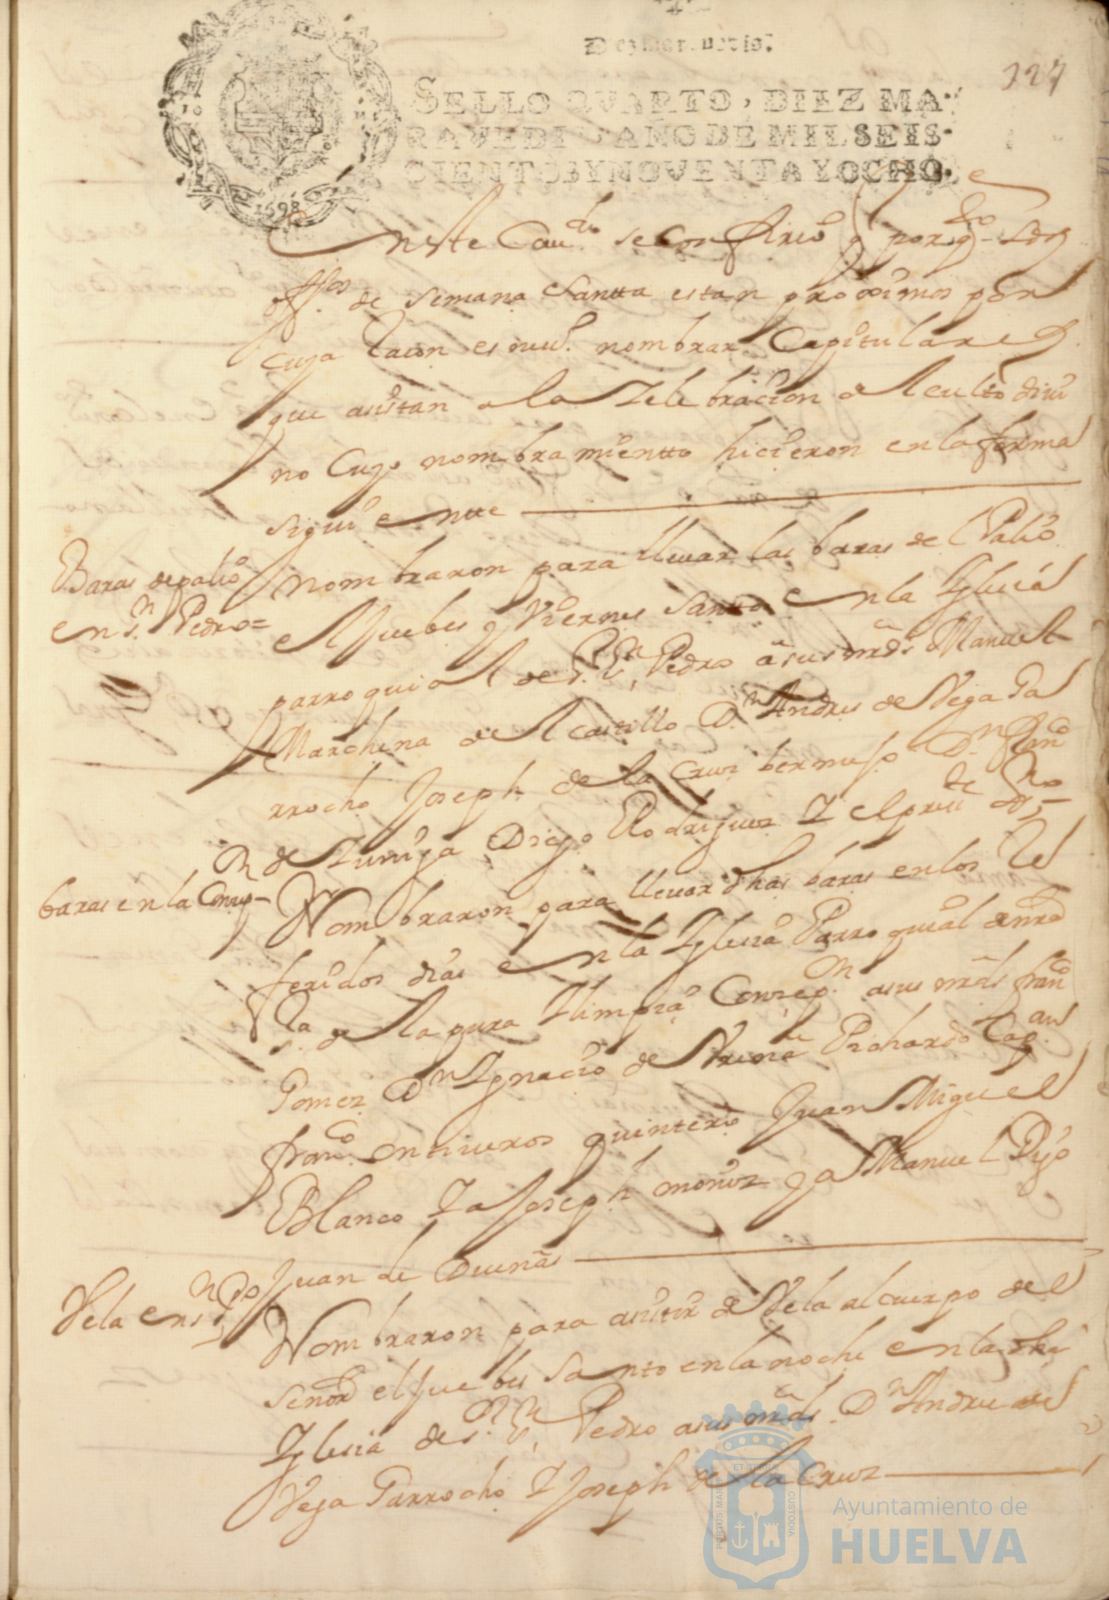 127
SELLO QVARTO, DIEZ MA-
RAVEDIS AÑO DE MIL SEIS-
CIENTOS Y NOVENTA Y OCHO.
1698
En este Cauᵈᵒ se Confirio q por qᵗᵒ Los
offᵒˢ de semana Santta estan proximos por
cuia Racon es nombrar Capitulares
que asistan a la Zelebracion del culto divi
no Cuyo nombramientto hicieron en la forma
siguiente
Baras de palio
en sⁿ Pedro=
Nombraron para llevar las baras del Palio
el Juebes y Viernes santto en la Iglecia
parroquial de sʳ sⁿ Pedro a sus mrds Manuel
Marchena del Castillo Dⁿ Andres de Vega Ga
rrocho Joseph de la Cruz bermejo Dⁿ Franᶜᵒ
de Zuniga Diego Rodriguez Y el preᵗᵉ ssⁿᵒ
baras en la Concepᵒⁿ
Nombraron para llevar dhas baras en los Re
feridos dias en la Iglesia Parroquial de nrᵃ
sʳᵃ de la pura Y limpia Conzepᵒⁿ a sus mrds fran
Gomez Dⁿ Ygnacio de Prohardo Capᵃⁿ
franᶜᵒ ontiveros quintero Juan Miguel
Blanco Y a Joseph monuz ya Manuel
Juan de Duenãs
Vela en sⁿ Pº
Nombraron para asistir de Vela al cuerpo del
señor el Juebes santo en la noche en la dha
Iglesia de sʳ sⁿ Pedro a sus mrds Dⁿ Andres de
Vega Garrocho Y Joseph de la Cruz
Ayuntamiento de
HUELVA